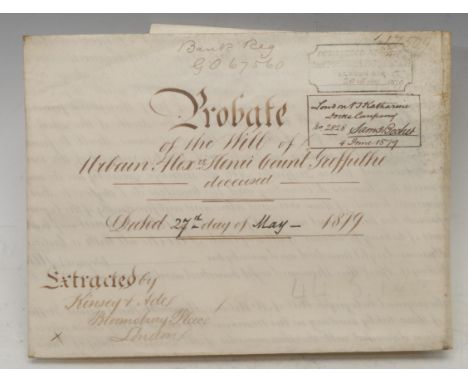 Bank Reg
G O 67560
London & St Katharine
Docks Company
No 2828
4 June 1879
Probate
of the Will of
Urbain Alexre Henri Count Greffulhe
deceased
Dated 27th day of May 1879
Extracted by
Kinsey & Ade
Bloomsbury Place
London
x